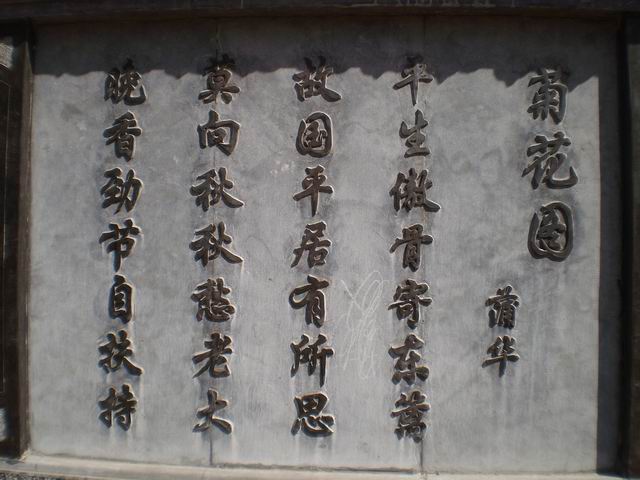 菊花图
蒲华
平生傲骨寄东篱
故国平居有所思
莫向秋秋愁老大
晚香劲节自扶持